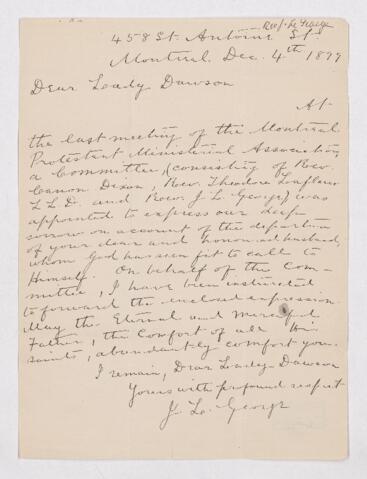 Rev J. L. George
458 St. Antoine St.
Montreal Dec. 4th 1899
Dear Leady Dawson
At
the last meeting of the Montreal
Protestant Ministerial Association,
a Committee, (consisting of Rev.
Canon Dixon, Rev. Theodore Lafleur
L.L.D. and Rev. J L. George) was
appointed to express our deep
sorrow on account of the departure
of your dear and honored husband,
whom God has seen fit to call to
Himself. On behalf of the Com-
mittee, I have been instructed
to forward the enclosed expression.
May the Eternal and Merciful
Father, the Comfort of all His
saints, abundantly comfort you.
I remain, Dear Leady Dawson
Yours with profound respect
J. L. George